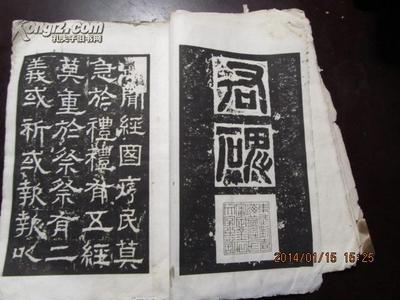 kongfz.com
孔夫子旧书网
君碑
聞經國序民莫
急於禮禮有五經
莫重於祭祭有二
義或祈或報報以
2014/01/15 15:25